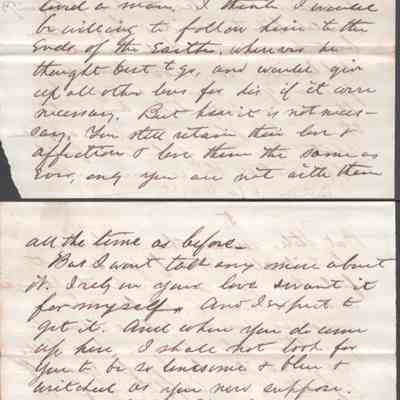 loved a man, I think I would
be willing to follow him to the
Ends of the Earth, wherever he
thought best to go, and would give
up all other loves for his if it were
necessary. But here it is not neces-
sary. You still retain their love &
affection & love them the same as
Ever, only you are not with them
all the time as before.
But I wont talk any more about
it. I rely on your love & want it
for myself. And I expect to
get it. And when you do come
up here I shall not look for
you to be so lonesome & blue &
wretched as you now suppose.